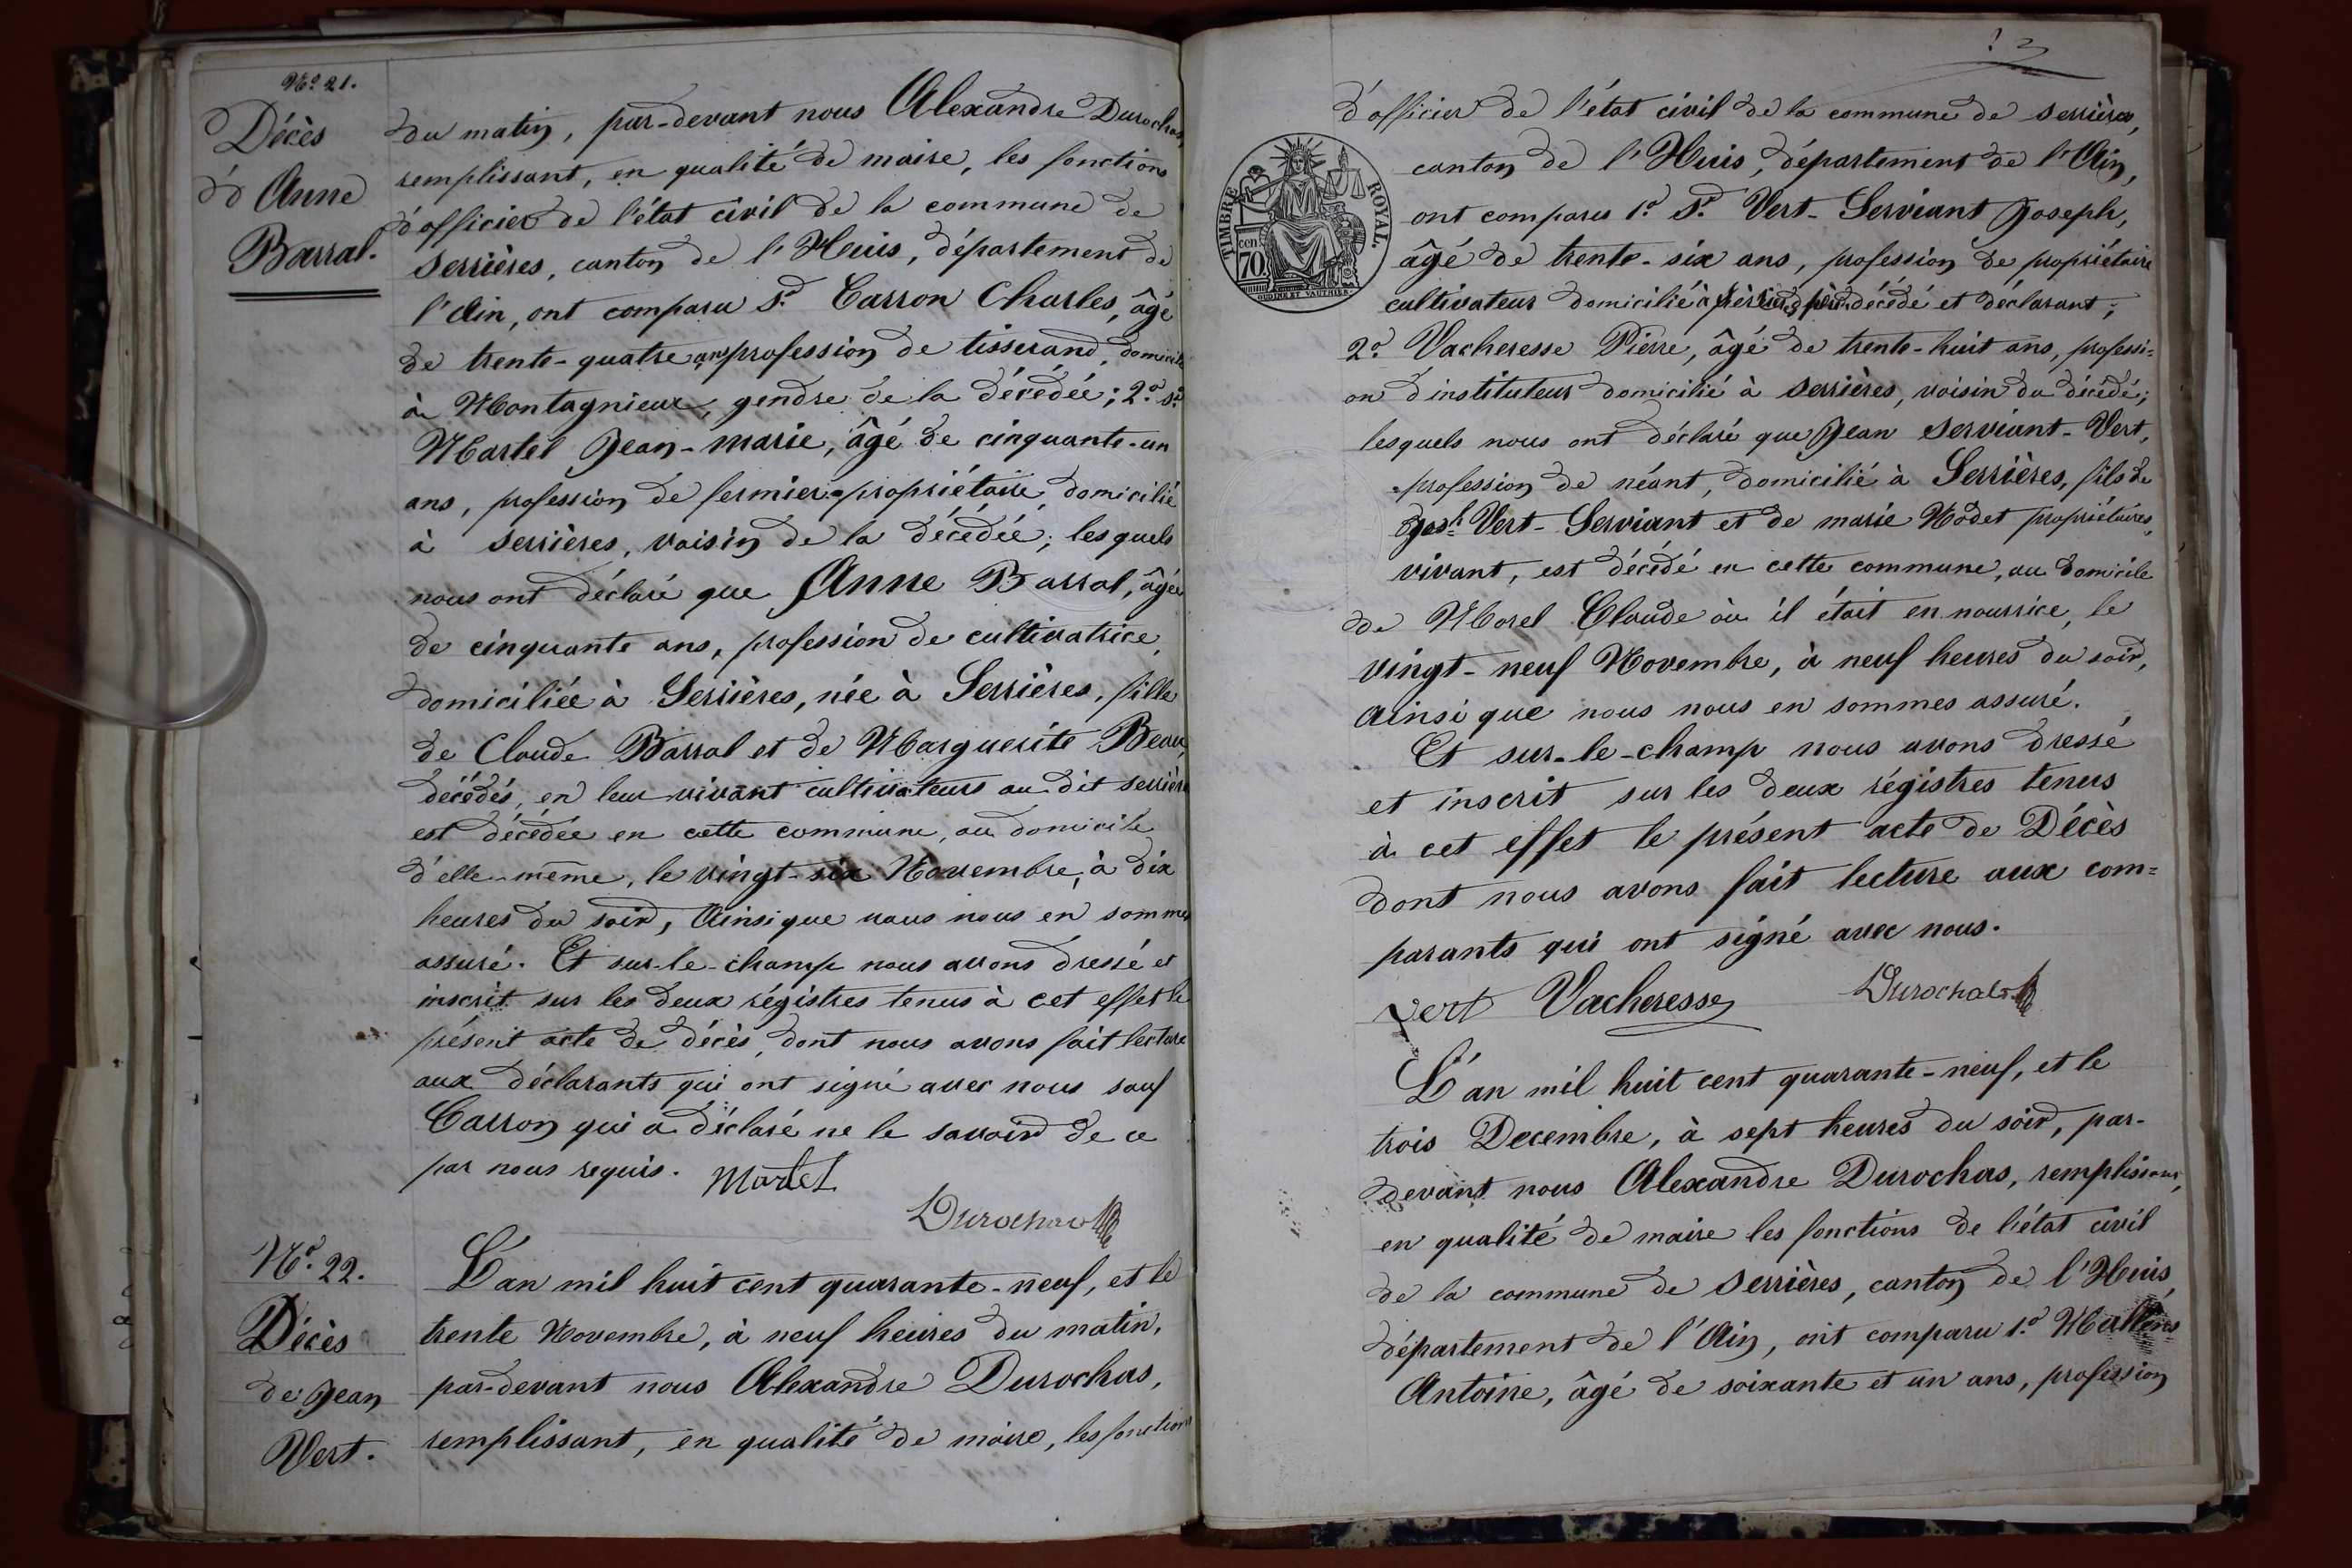 Nº 21.
Décès
d'Anne
Barral.
du matin, par-devant nous Alexandre Durochas,
remplissant, en qualité de maire, les fonctions
d'officier de l'état civil de la commune de
Serrières, canton de l'Huis, département de
l'Ain, ont comparu Sr. Carron Charles, âgé
de trente-quatre ans profession de tisserand, domicilié
à Montagnieux, gendre de la décédée; 2º Sr.
Martel Jean-marie, âgé de cinquante-un
ans, profession de fermier-propriétaire, domicilié
à Serrières, voisin de la décédée; lesquels
nous ont déclaré que Anne Barral, âgée
de cinquante ans, profession de cultivatrice,
domiciliée à Serrières, née à Serrières, fille
de Claude Barral et de Marguerite Beau,
décédés, en leur vivant cultivateurs au dit Serrières
est décédée en cette commune, au domicile
d'elle-même, le vingt-six Novembre, à dix
heures du soir, Ainsi que nous nous en sommes
assuré. Et sur-le-champ nous avons dressé et
inscrit sur les deux régistres tenus à cet effet le
présent acte de décès, dont nous avons fait lecture
aux déclarants qui ont signé avec nous sauf
Carron qui a déclaré ne le savoir de ce
par nous requis. Martel
Durochas
Nº. 22.
Décès
de Jean
Vert.
L'an mil huit cent quarante-neuf, et le
trente Novembre, à neuf heures du matin,
par-devant nous Alexandre Durochas,
remplissant, en qualité de maire, les fonctions
d'officier de l'état civil de la commune de Serrières,
canton de l'Huis, département de l'Ain,
TIMBRE ROYAL.
cen
70.
OUDINÉ ET VAUTHIER.
ont comparu 1º Sr. Vert-Serviant Joseph,
âgé de trente-six ans, profession de propriétaire
cultivateur domicilié à décédé et déclarant;
2º Vacheresse Pierre, âgé de trente-huit ans, professi=
on d'instituteur domicilié à Serrières, voisin du décédé;
lesquels nous ont déclaré que Jean Serviant-Vert,
profession de néant, domicilié à Serrières, fils de
Josh Vert-Serviant et de marie Nodet propriétaires,
vivant, est décédé en cette commune, au domicile
de Morel Claude où il était en nourrice, le
vingt-neuf Novembre, à neuf heures du soir,
Ainsi que nous nous en sommes assuré.
Et sur-le-champ nous avons dressé
et inscrit sur les deux régistres tenus
à cet effet le présent acte de Décès
dont nous avons fait lecture aux com=
parants qui ont signé avec nous.
vert Vacheresse Durochas
L'an mil huit cent quarante-neuf, et le
trois Decembre, à sept heures du soir, par-
devant nous Alexandre Durochas, remplissant,
en qualité de maire les fonctions de l'état civil
de la commune de Serrières, canton de l'Huis,
département de l'Ain, ont comparu 1º
Antoine, âgé de soixante et un ans, profession